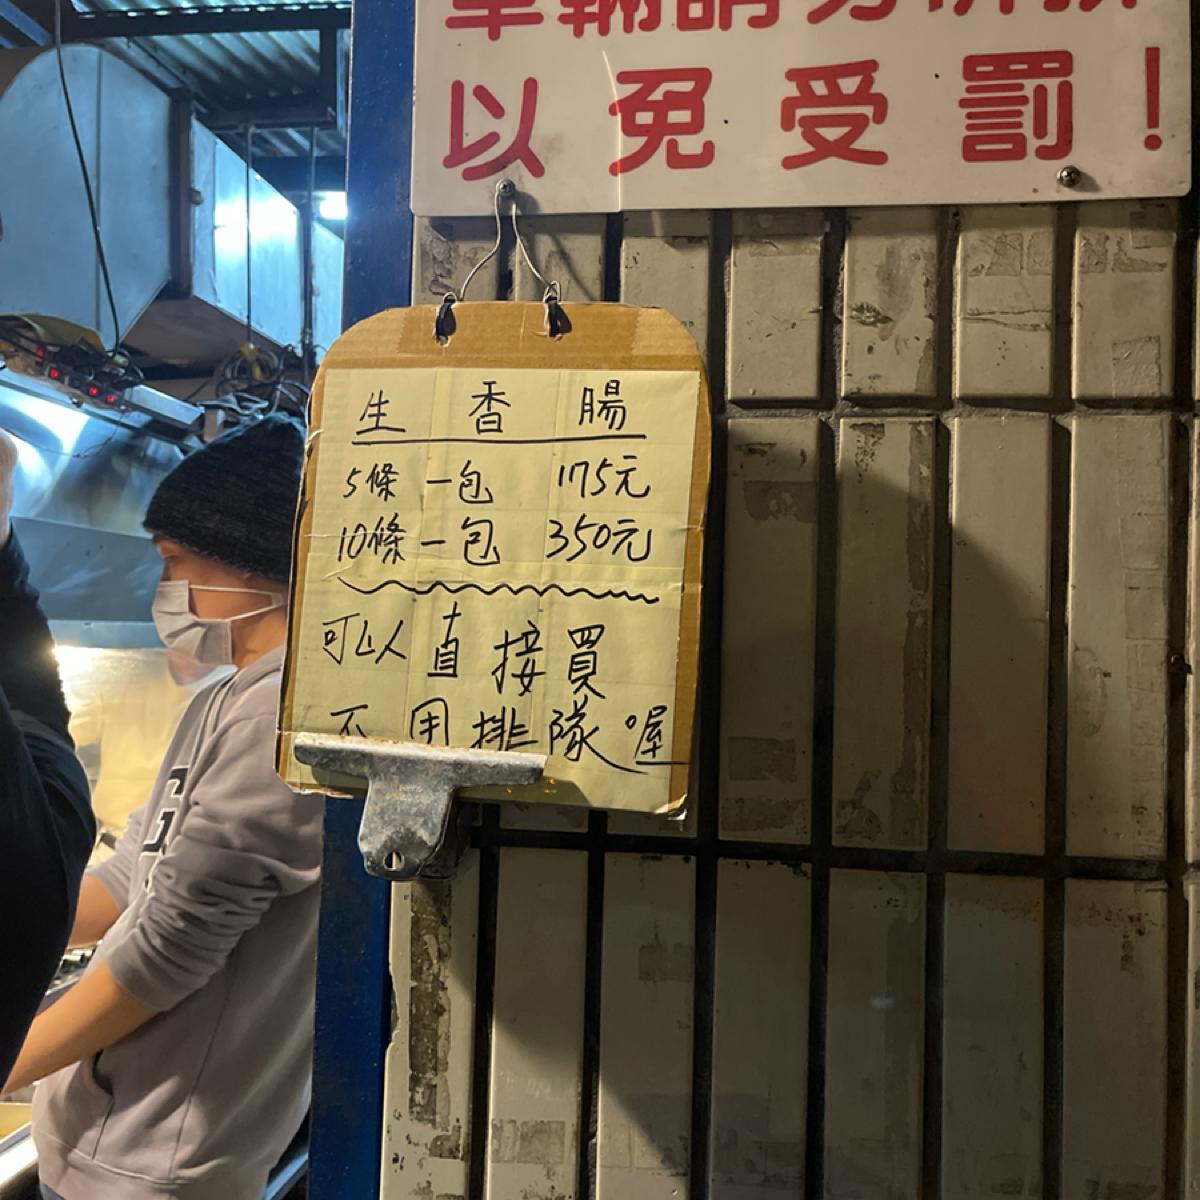 車輛請勿併排
以免受罰!
生香腸
5條一包 175元
10條一包 350元
可以直接買
不用排隊喔